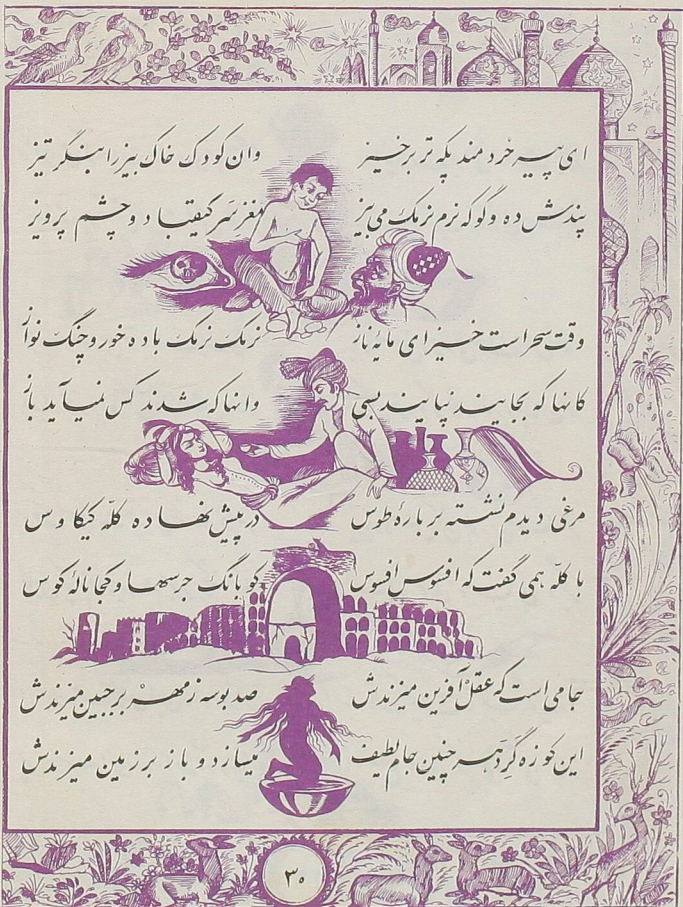 ای پیر خردمند پگه تر برخیز وان کودک خاک بیز را بنگر تیز
پندش ده و گو که نرم نرمک می‌بیز مغز سر کیقباد و چشم پرویز
وقت سحر است خیز ای مایهٔ ناز نرمک نرمک باده خور و چنگ نواز
کانها که بجایند نپایند بسی وانها که شدند کس نمیآید باز
مرغی دیدم نشسته بر بارهٔ طوس در پیش نهاده کلهٔ کیکاوس
با کله همی گفت که افسوس افسوس کو بانک جرسها و کجا نالهٔ کوس
جامی است که عقل آفرین میزندش صد بوسه ز مهر بر جبین میزندش
این کوزه گر دهر چنین جام لطیف میسازد و باز بر زمین میزندش
۳۰